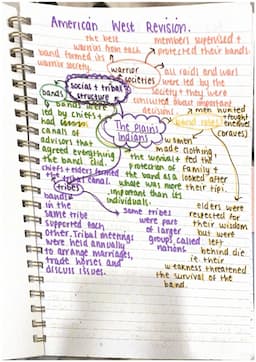 American West Revision.
the best
warriors from each
band formed its
warrior society.
members supervised +
protected their bands.
warrior
societies
all raids and wars
were led by the
society + they were
consulted about important
decisions.
social + tribal
structure
bands
bands were
led by chiefs +
had
canals of
advisors that
agreed everything
the band did.
chiefs + elders formed
the tribal canal.
The Plains
Indians
band roles
men hunted
+ fought
enemies
(braves)
women
made clothing,
fed the
family +
looked after
their tipi.
the survival +
protection of
the band as a
whole was more
important than its
individuals.
tribes
bands
in the
same tribe
supported each
other. Tribal meetings
were held annually
to arrange marriages,
trade horses and
discuss issues.
some tribes
were part
of larger
groups called
nations
elders were
respected for
their wisdom
but were
left
behind die
i.e. their
weakness threatened
the survival of the
band.